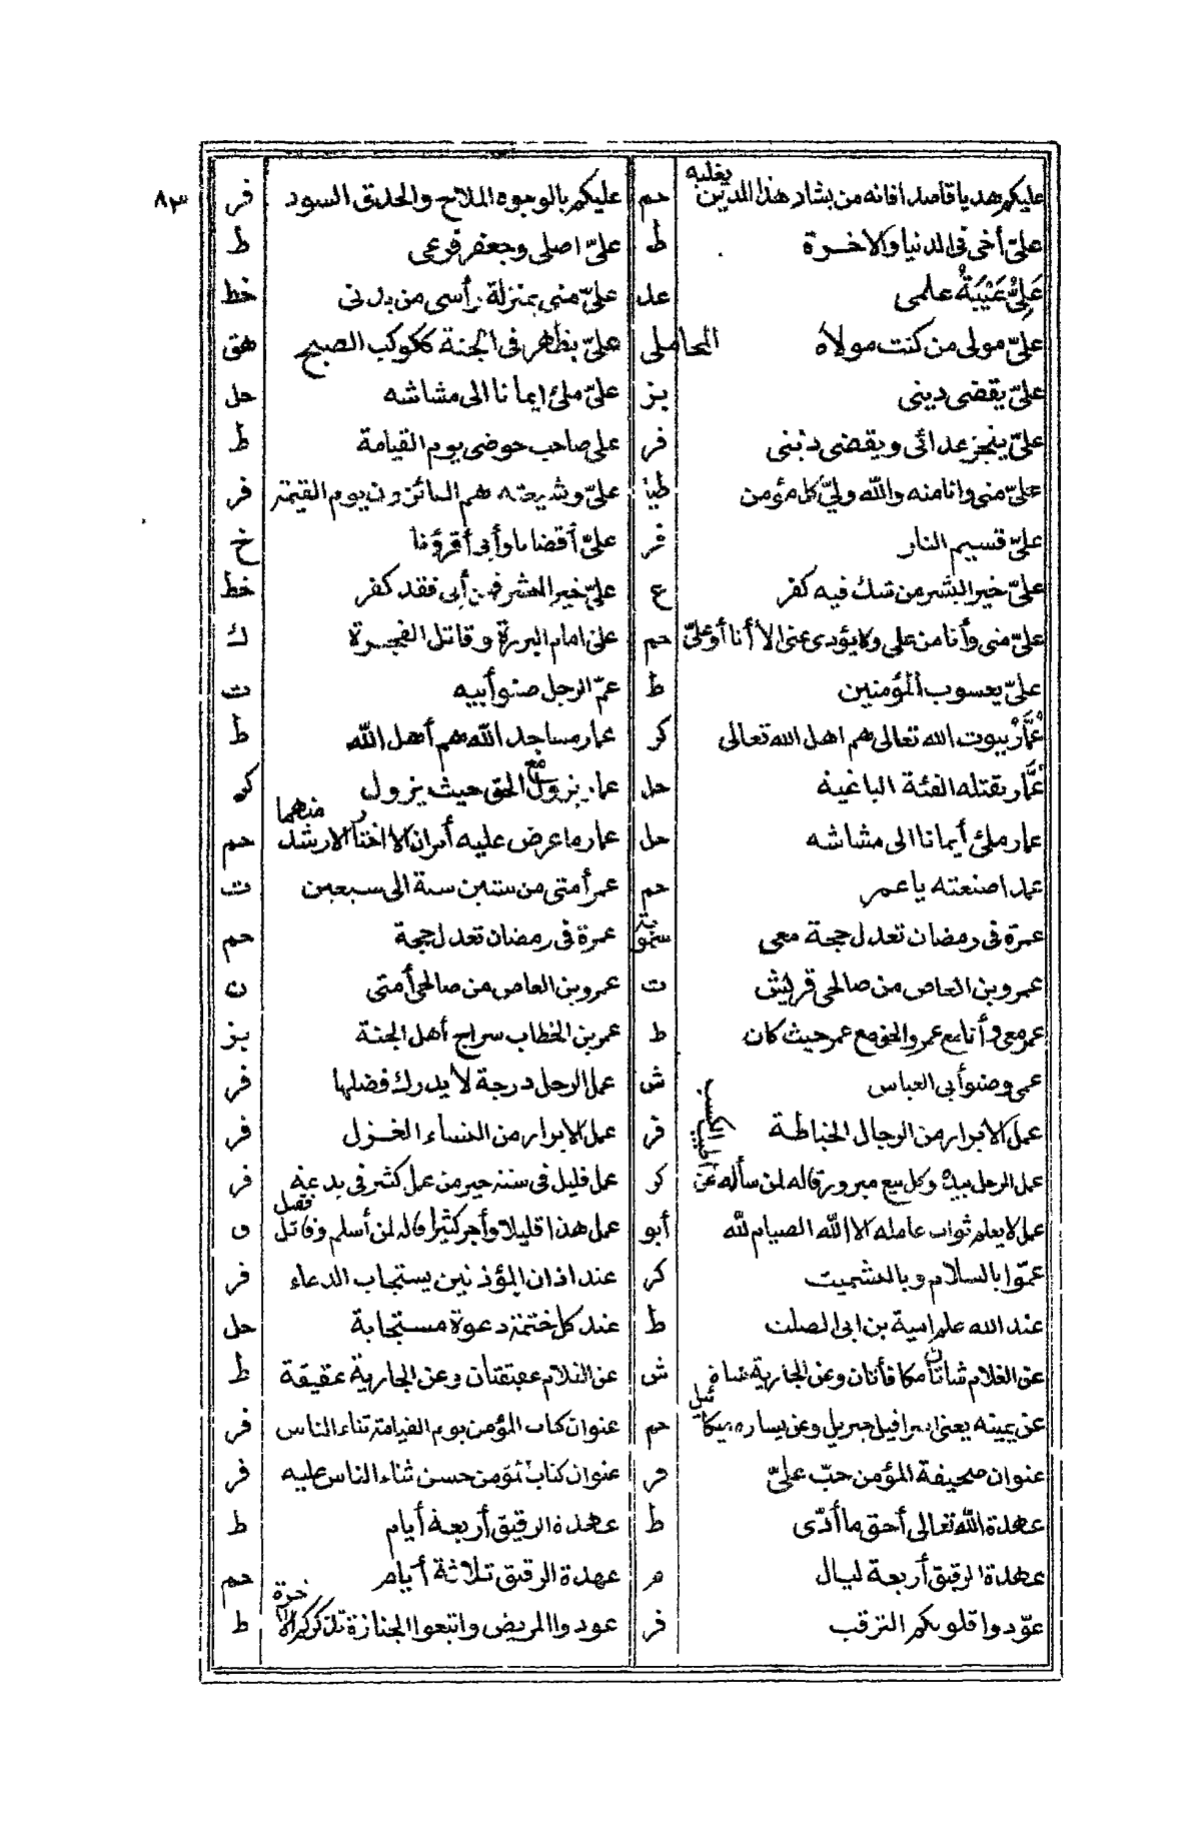 ٨٣
عليكم هديا قاصدا فانه من يشاد هذا الدين يغلبه حم عليكم بالوجوه الملاح والحدق السود فر
علىّ أخى فى الدنيا والاخرة ط علىّ اصلى وجعفر فرعى ط
عَلِىٌّ عَيْبَةُ علمى عد علىّ منى بمنزلة رأسى من بدنى خط
علىّ مولى من كنت مولاه المحاملى علىّ يظهر فى الجنة ككوكب الصبح هق
علىّ يقضى دينى بز علىّ ملئ ايمانا الى مشاشه حل
علىّ ينجز عداتى ويقضى دينى فر على صاحب حوضى يوم القيامة ط
علىّ منى وانا منه والله ولىّ كل مؤمن طيا علىّ وشيعته هم الفائزون يوم القيمة فر
علىّ قسيم النار فر علىّ أقضانا وأبى أقرؤنا خ
علىّ خير البشر من شك فيه كفر ع علىّ خير البشر فمن أبى فقد كفر خط
علىّ منى وأنا من على ولا يؤدى عنى الا أنا أو علىّ حم على امام البررة وقاتل الفجرة ك
علىّ يعسوب المؤمنين ط عمّ الرجل صنو أبيه ت
عُمَّارُ بيوت الله تعالى هم اهل الله تعالى كر عمار مساجد الله هم أهل الله ط
عَمَّار تقتله الفئة الباغية حل عمار يزول مع الحق حيث يزول كر
عمار ملئ أيمانا الى مشاشه حل عمار ما عرض عليه أمران الا اختار الارشد منهما حم
عمدا صنعته يا عمر حم عمر أمتى من ستين سنة الى سبعين ت
عمرة فى رمضان تعدل حجة معى سمويه عمرة فى رمضان تعدل حجة حم
عمرو بن العاص من صالحى قريش ت عمرو بن العاص من صالحى أمتى ن
عمر معى وأنا مع عمر والحق مع عمر حيث كان ط عمر بن الخطاب سراج أهل الجنة بز
عمى وصنو أبى العباس ش عمل الرجل درجة لا يدرك فضلها فر
عمل الابرار من الرجال الخياطة فر عمل الابرار من النساء الغزل فر
عمل الرجل بيده وكل بيع مبرور قاله لمن سأله عن أطيب الكسب كر عمل قليل فى سنة خير من عمل كثير فى بدعة فر
عمل لا يعلم ثواب عامله الا الله الصيام لله أبو عمل هذا قليلا وأجر كثيرا قاله لمن أسلم وقاتل فقتل ق
عمّوا بالسلام وبالتشميت كر عند اذان المؤذنين يستجاب الدعاء فر
عند الله علم امية بن ابى الصلت ط عند كل ختمة دعوة مستجابة حل
عن الغلام شاتان مكافأتان وعن الجارية شاة ش عن الغلام عقيقتان وعن الجارية عقيقة ط
عن يمينه يعنى اسرافيل جبريل وعن يساره ميكائيل حم عنوان كتاب المؤمن يوم القيامة ثناء الناس فر
عنوان صحيفة المؤمن حبّ علىّ فر عنوان كتاب المؤمن حسن ثناء الناس عليه فر
عهدة الله تعالى أحق ما أدّى ط عهدة الرقيق أربعة أيام ط
عهدة الرقيق أربعة ليال عهدة الرقيق ثلاثة أيام حم
عوّدوا قلوبكم الترقب فر عودوا المريض واتبعوا الجنازة تذكركم الآخرة ط